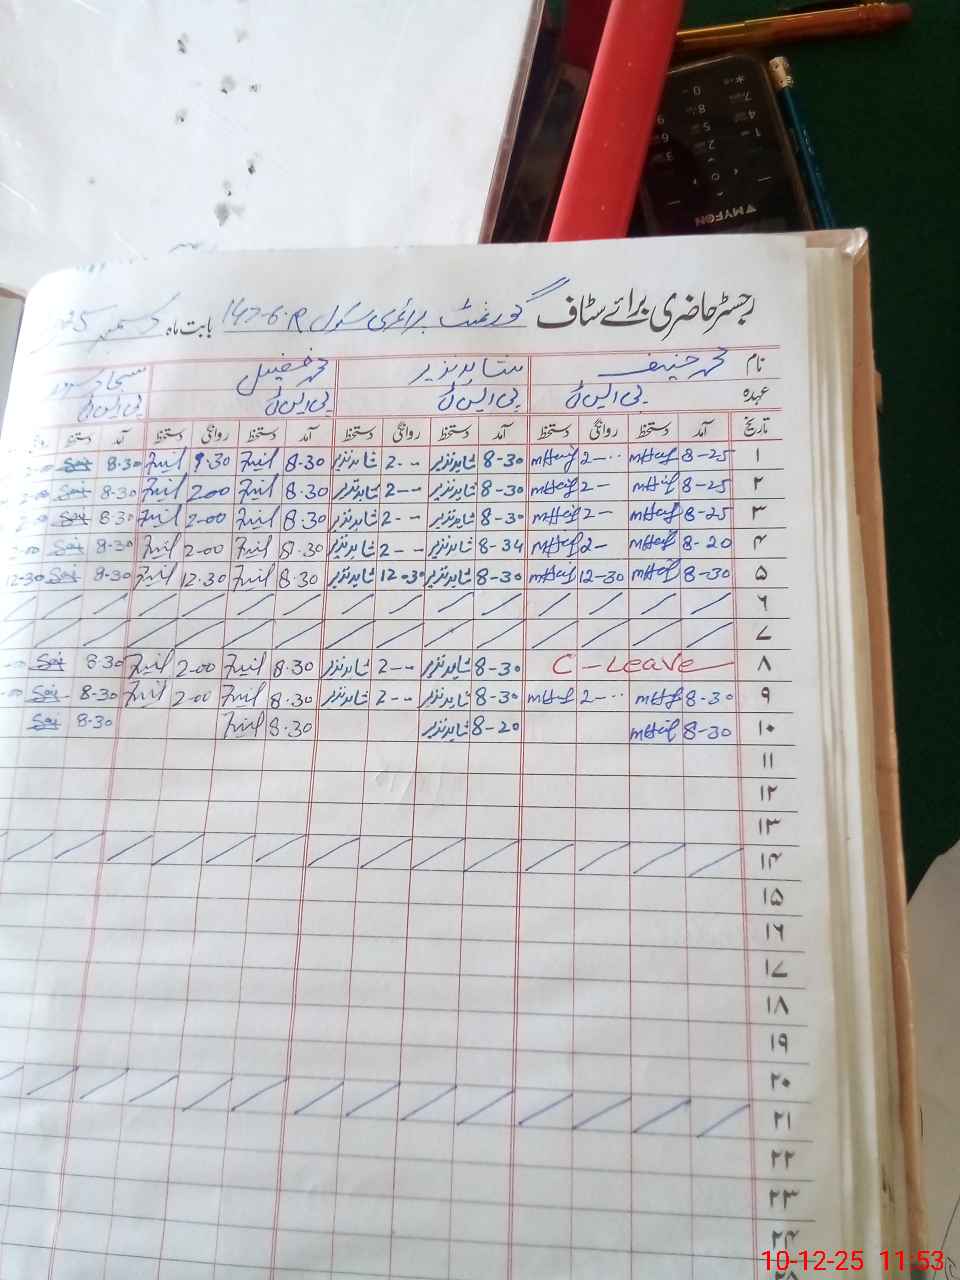 رجسٹر حاضری برائے سٹاف گورنمنٹ پرائمری سکول 147-6.R بابت ماہ دسمبر
نام محمد حنیف شاہد نذیر محمد فضیل سجاد
عہدہ پی ایس ٹی پی ایس ٹی پی ایس ٹی پی ایس ٹی
تاریخ آمد دستخط روانگی دستخط آمد دستخط روانگی دستخط آمد دستخط روانگی دستخط آمد دستخط
۱ 8-25 mHaif 2-.. mHaif 8-30 شاہد نذیر 2-- شاہد نذیر 8.30 9.30 8.30
۲ 8-25 mHaif 2- mHaif 8-30 شاہد نذیر 2-- شاہد نذیر 8.30 2.00 8-30
۳ 8-25 mHaif 2- mHaif 8-30 شاہد نذیر 2-- شاہد نذیر 8.30 2-00 8.30
۴ 8-20 mHaif 2- mHaif 8-34 شاہد نذیر 2-- شاہد نذیر 8.30 2-00 8-30
۵ 8-30 mHaif 12-30 mHaif 8-30 شاہد نذیر 12-30 شاہد نذیر 8.30 12.30 8-30 12-30
۶
۷
۸ C-Leave 8-30 شاہد نذیر 2-- شاہد نذیر 8.30 2-00 8.30
۹ 8-30 mHaif 2-.. mHaif 8-30 شاہد نذیر 2-- شاہد نذیر 8.30 2-00 8-30
۱۰ 8-30 mHaif 8-20 شاہد نذیر 8.30 8-30
۱۱
۱۲
۱۳
۱۴
۱۵
۱۶
۱۷
۱۸
۱۹
۲۰
۲۱
۲۲
۲۳
۲۴
MYFON
10-12-25 11:53